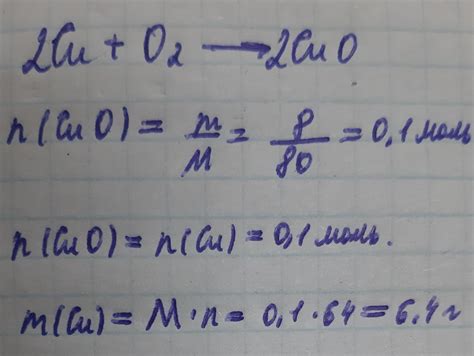 2Cu + O₂ → 2CuO
n(CuO) = m/M = 8/80 = 0,1 моль
n(CuO) = n(Cu) = 0,1 моль.
m(Cu) = M·n = 0,1·64 = 6,4 г